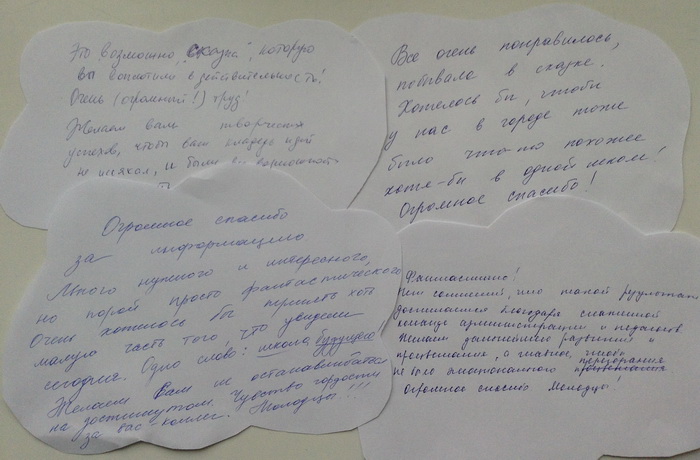 Это возможно, "сказка", которую
вы воплотили в действительность!
Очень (огромный!) труд!
Желаем вам творческих
успехов, чтобы ваш кладезь идей
не иссякал, и были бы возможности
Все очень понравилось,
побывала в сказке.
Хотелось бы, чтобы
у нас в городе тоже
было что-то похожее
хотя-бы в одной школе!
Огромное спасибо!
Огромное спасибо
за информацию
Много нужного и интересного,
но порой просто фантастического
Очень хотелось бы перенять хоть
малую часть того, что увидели
сегодня. Одно слово: школа будущего
Желаем Вам не останавливаться
на достигнутом. Чувство гордости
за вас - коллег. Молодцы!!!
Фантастично!
Нет сомнений, что такой результат
достигается благодаря сплоченной
команде администрации и педагогов
Желаем дальнейшего развития и
процветания, а главное, чтобы
не было эмоционального перегорания
процветания
Огромное спасибо Молодцы!